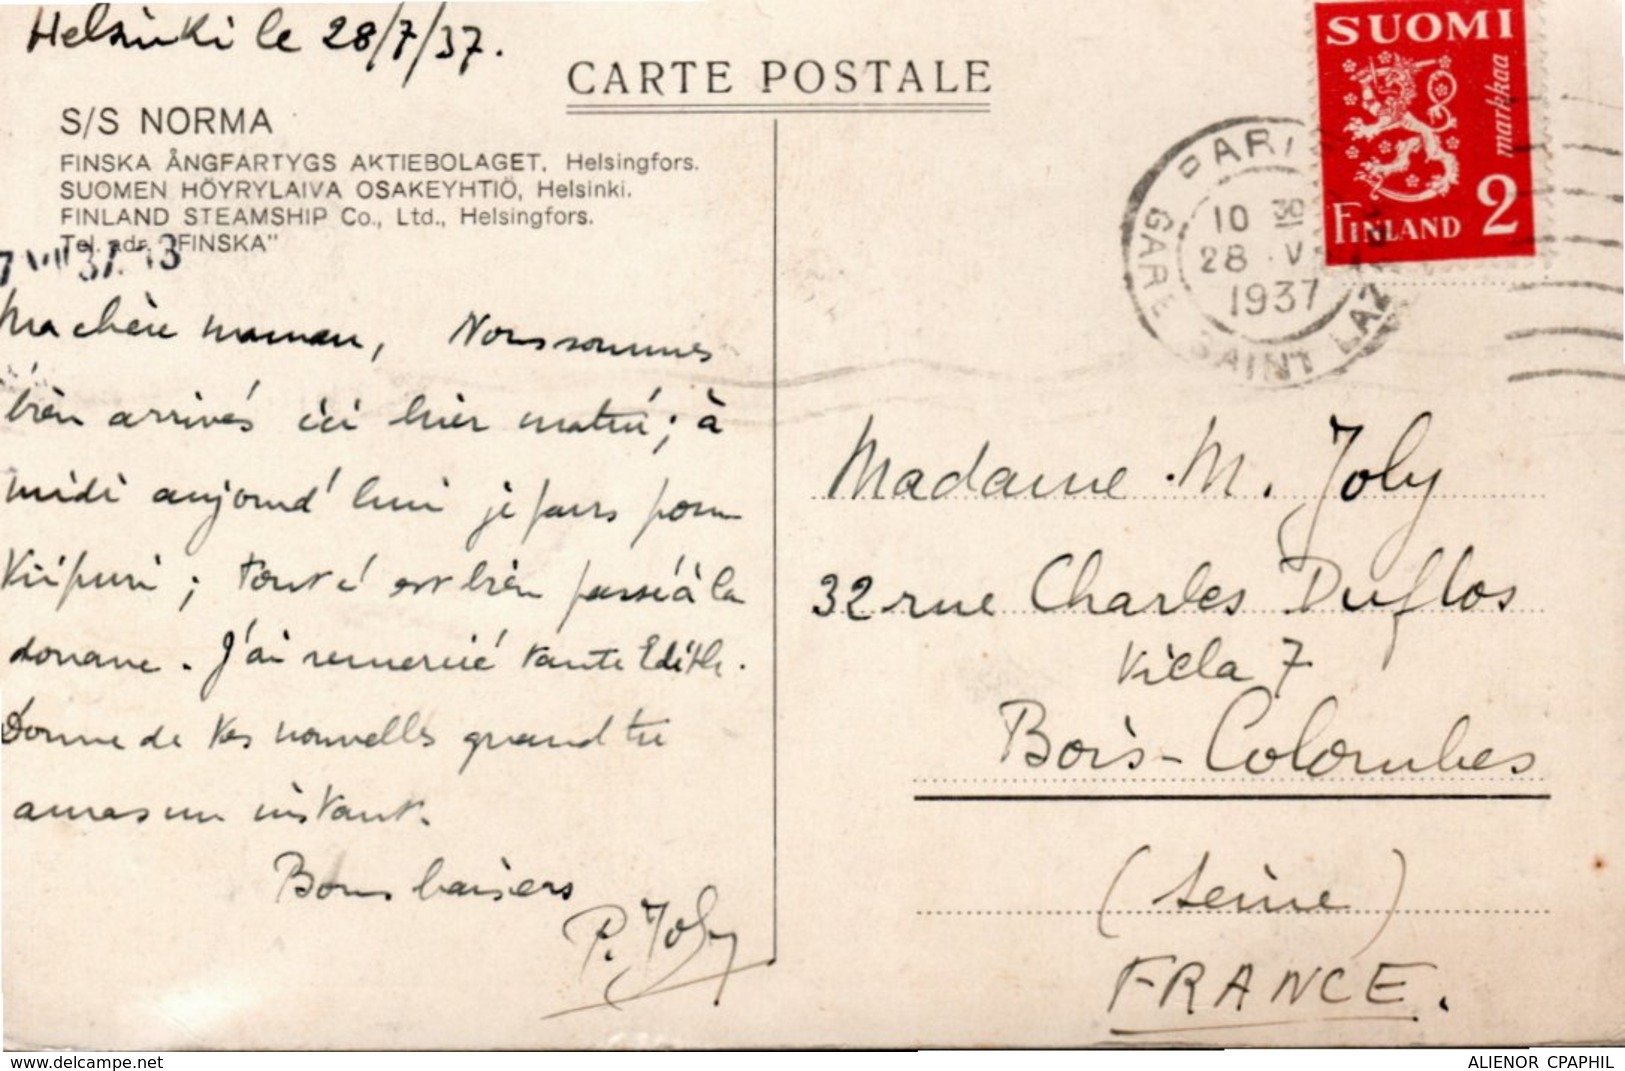 Helsinki le 28/7/37.
CARTE POSTALE
S/S NORMA
FINSKA ÅNGFARTYGS AKTIEBOLAGET, Helsingfors.
SUOMEN HÖYRYLAIVA OSAKEYHTIÖ, Helsinki.
FINLAND STEAMSHIP Co., Ltd., Helsingfors.
Tel. adr. "FINSKA"
Ma chère maman, Nous sommes
bien arrivés ici hier matin; à
midi aujourd'hui je pars pour
Viipuri; tout s'est bien passé à la
douane. J'ai remercié tante Edith.
Donne de tes nouvelles quand tu
auras un instant.
Bons baisers
P. Joly
SUOMI
markkaa
FINLAND 2
PARIS
GARE SAINT LAZARE
10 30
28 V
1937
Madame M. Joly
32 rue Charles Duflos
Villa 7
Bois-Colombes
(Seine)
FRANCE.
www.delcampe.net
ALIENOR CPAPHIL